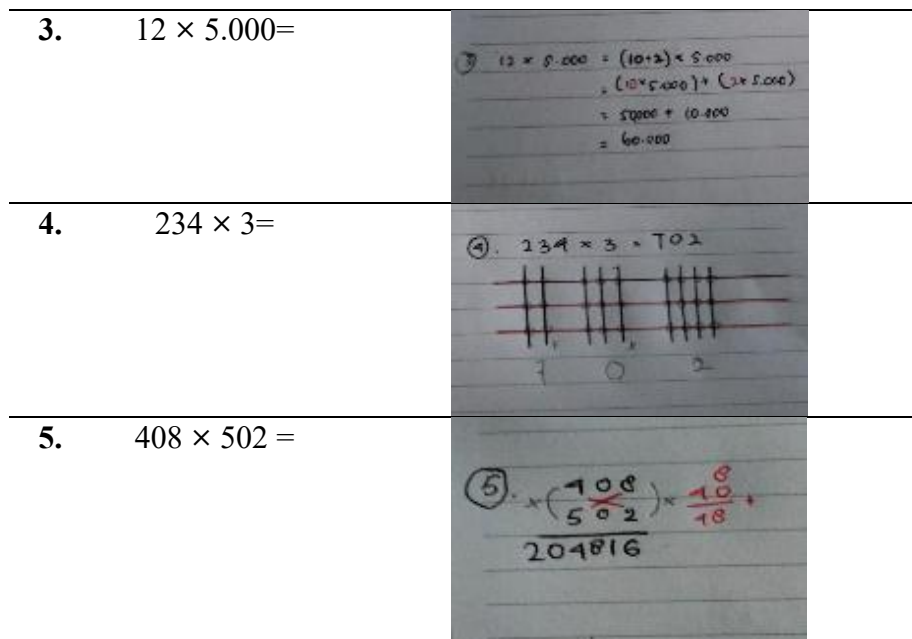 3. 12 × 5.000=
③ 12 × 5.000 = (10+2) × 5.000
= (10×5.000) + (2×5.000)
= 50.000 + 10.000
= 60.000
4. 234 × 3=
④. 234 × 3 = 702
7 0 2
5. 408 × 502 =
⑤. ×(408
502)× 8
40
48 +
204816